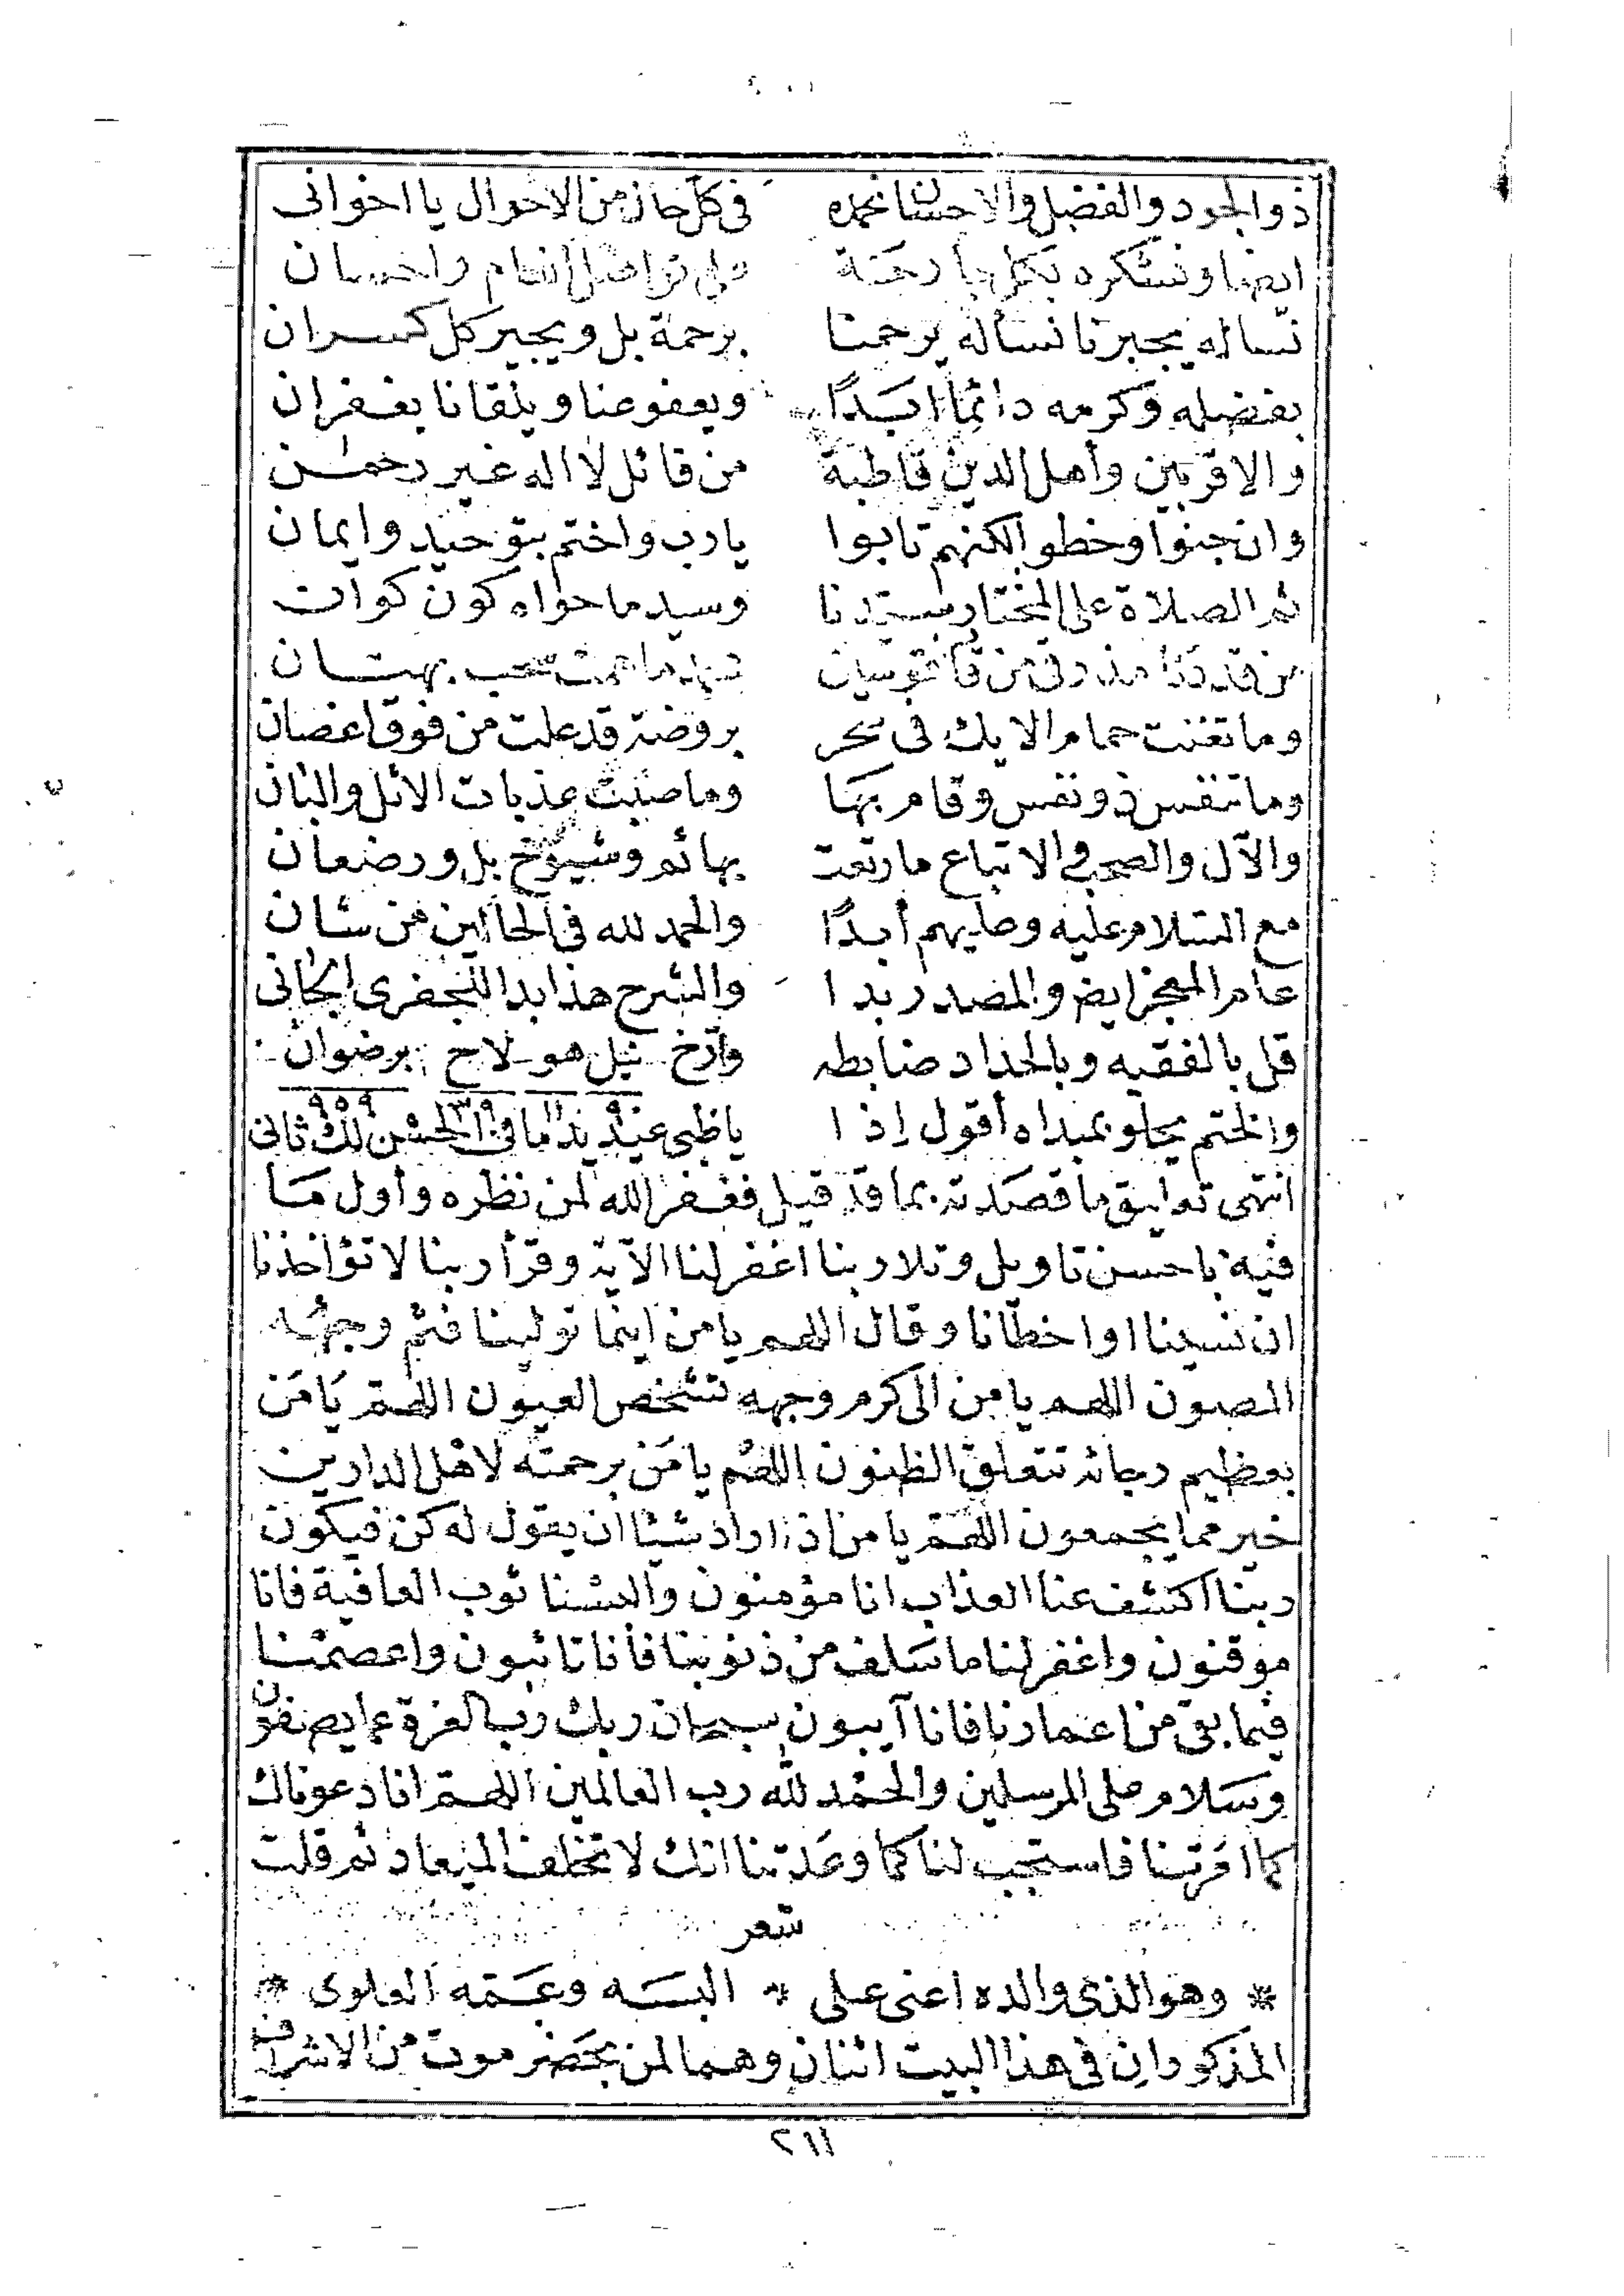 ذو الجود والفضل والاحسان نحمده في كل حال من الاحوال يا اخواني
ايضا ونشكره بكل جارحة على انعام واحسان
نسأله يجبرنا نسأله يرحمنا برحمة بل ويجبر كل كسران
بفضله وكرمه دائما ابدًا ويعفو عنا ويلقانا بغفران
والاقربين وأهل الدين قاطبة من قائل لا اله غير رحمن
وان جنوا وخطوا لكنهم تابوا يا رب واختم بتوحيد وايمان
ثم الصلاة على المختار سيدنا وسيد ما حواه كون كوان
من قد دنا قوسين ما همت سحب بهتان
وما تغنت حمام الايك في سحر بروضة قد علت من فوق اغصان
وما تنفس ذو نفس وقام بها وما صبت عذبات الاثل والبان
والآل والصحب والاتباع ما رتعت بهائم وشيوخ بل ورضعان
مع السلام عليه وعليهم أبدًا والحمد لله في الحالين من شان
عام المعجز ايض والمصدر بدا والشرح هذا بدا للجفرى الجانى
قل بالفقيه وبالحداد ضابطه وارخ نيل هو لاح برضوان
٩٥٩
والختم يحلو بمبداه أقول اذا يا ظبى عيديد ما في الحسن لك ثانى
انتهى تعليق ما قصدته بما قد قيل فغفر الله لمن نظره وأول مَا
فيه باحسن تاويل وتلا ربنا اغفر لنا الآية وقرأ ربنا لا تؤاخذنا
ان نسينا او اخطأنا وقال اللهم يا من اينما تولينا فثم وجهه
المصون اللهم يا من الى كرم وجهه تشخص العيون اللهم يَا مَن
بعظيم رجائه تتعلق الظنون اللهم يا مَن برحمته لاهل الدارين
خير مما يجمعون اللهم يا من اذا اراد شيئا ان يقول له كن فيكون
ربنا اكشف عنا العذاب انا مؤمنون والبسنا ثوب العافية فانا
موقنون واغفر لنا ما سَلف من ذنوبنا فأنا تائبون واعصمنا
فيما بقى من اعمارنا فانا آيبون سبحان ربك رب العزة عما يصفون
وسَلام على المرسلين والحمد لله رب العالمين اللهم انا دعوناك
كما امرتنا فاستجب لنا كما وعَدتنا انك لا تخلف الميعاد ثم قلت
شعر
* وهو الذى والده اعنى على * البسَه وعَمّه العلوى *
المذكوران في هذا البيت اثنان وهما لمن بحَضرموت من الاشراف
٢١١